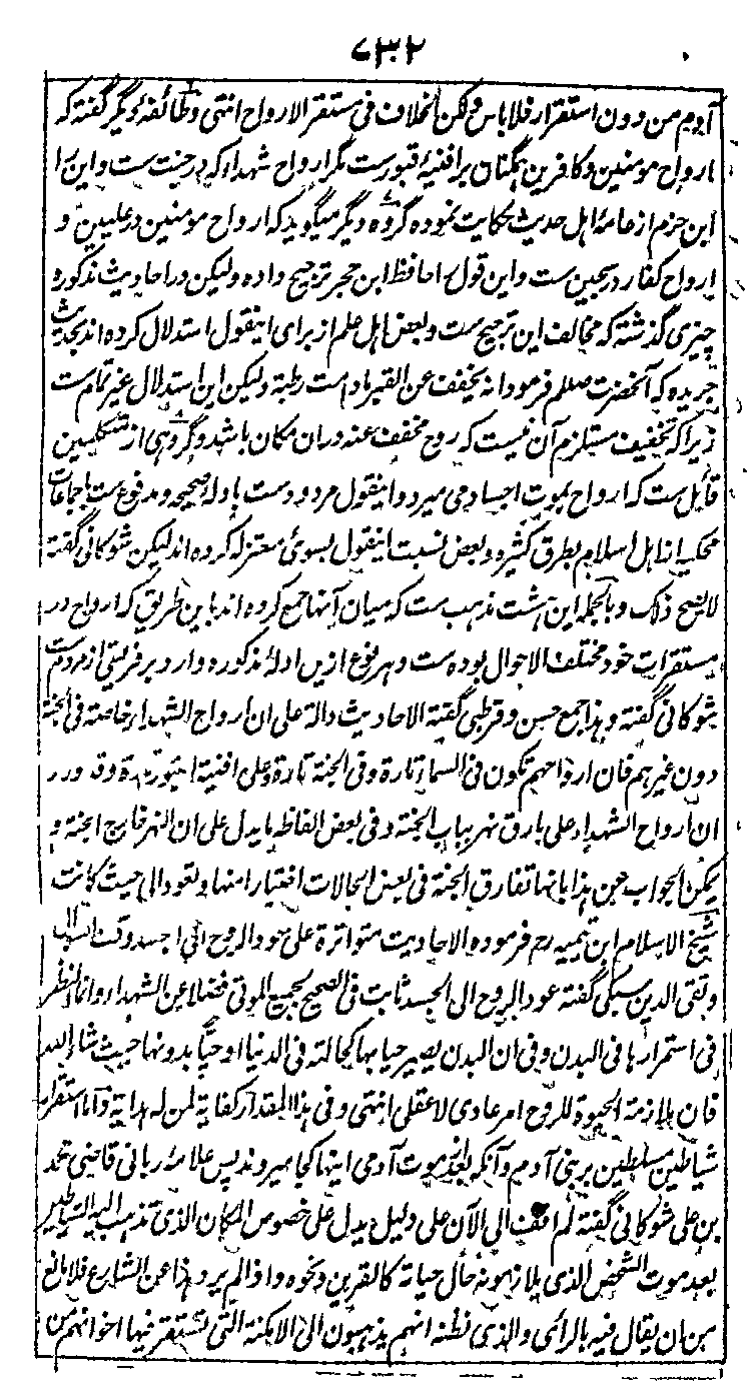 ۷۳۲
آدم من دون استقرار فلا باس ولكن الخلاف فی مستقر الارواح انتهی وطائفهٔ دیگر گفته که
ارواح مومنین و کافرین همگنان بر افنیهٔ قبورست مگر ارواح شهدا که در جنت ست و این را
ابن حزم از عامهٔ اهل حدیث حکایت نموده گروه دیگر میگوید که ارواح مومنین در علیین و
ارواح کفار در سجین ست و این قول را حافظ ابن حجر ترجیح داده ولیکن در احادیث مذکوره
چیزی گذشته که مخالف این ترجیح ست و بعض اهل علم از برای اینقول استدلال کرده اند بحدیث
جریده که آنحضرت صلعم فرمود انه یخفف عن القبر مادامت رطبة ولیکن این استدلال غیر تمام ست
زیرا که تخفیف مستلزم آن نیست که روح مخفف عنه دران مکان باشد و گروهی از متکلمین
قائل ست که ارواح بموت اجساد می میرد و اینقول مردودست بادلهٔ صحیحه و مدفوع ست باجماعات
محکیه از اهل اسلام بطرق کثیره و بعض نسبت اینقول بسوی معتزله کرده اند لیکن شوکانی گفته
لا یصح ذلک و بالجمله این هشت مذهب ست که میان آنها جمع کرده اند باین طریق که ارواح در
مستقرات خود مختلف الاحوال بوده ست و هر نوع ازین ادلهٔ مذکوره وارد بر فریقی از مردم ست
شوکانی گفته وهذا جمع حسن و قرطبی گفته الاحادیث دالة علی ان ارواح الشهدا خاصة فی الجنة
دون غیرهم فان ارواحهم تکون فی السما تارة وفی الجنة تارة وعلی افنیة القبور تارة وقد ورد
ان ارواح الشهداء علی بارق نهر بباب الجنة وفی بعض الفاظه ما یدل علی ان النهر خارج الجنة و
یمکن الجواب عن هذا بانها تفارق الجنة فی بعض الحالات اختیارا منها وتعود الی حیث کانت
شیخ الاسلام ابن تیمیه رح فرموده الاحادیث متواترة علی عود الروح الی الجسد وقت السوال
و تقی الدین سبکی گفته عود الروح الی الجسد ثابت فی الصحیح لجمیع الموتی فضلا عن الشهدا وانما النظر
فی استمرارها فی البدن وفی ان البدن یصیر حیا بها کحالته فی الدنیا او حیا بدونها حیث شاء الله
فان ملازمة الحیوة للروح امر عادی لا عقلی انتهی وفی هذا المقدار کفایة لمن له هدایة و اما استقرار
شیاطین مسلطین بر بنی آدم و آنکه بعد از موت آدمی اینها کجا میروند پس علامهٔ ربانی قاضی محمد
بن علی شوکانی گفته لم اقف الی الآن علی دلیل یدل علی خصوص المکان الذی تذهب الیه الشیاطین
بعد موت الشخص الذی یلازمونه حال حیاته کالقرین ونحوه واذا لم یرد هذا عن الشارع فلا مانع
من ان یقال فیه بالرای والذی نظنه انهم یذهبون الی الامکنة التی تستقر فیها اخوانهم من